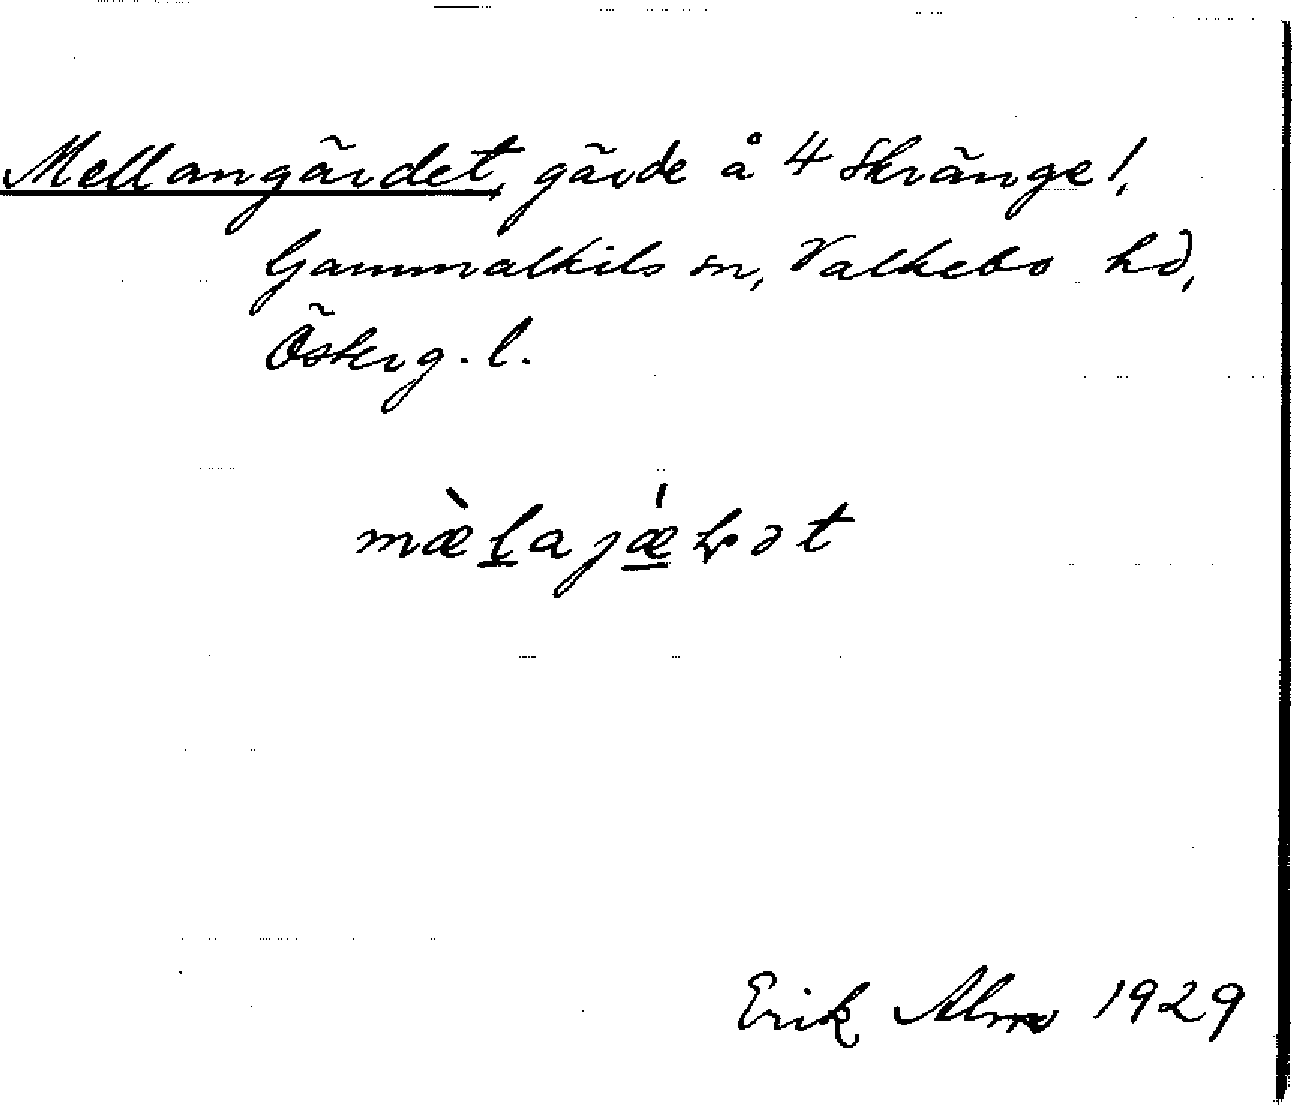 Mellangärdet, gärde å 4 Skränge l,
Gammalkils sn, Valkebo hd,
Österg. l.
Erik Alm 1929